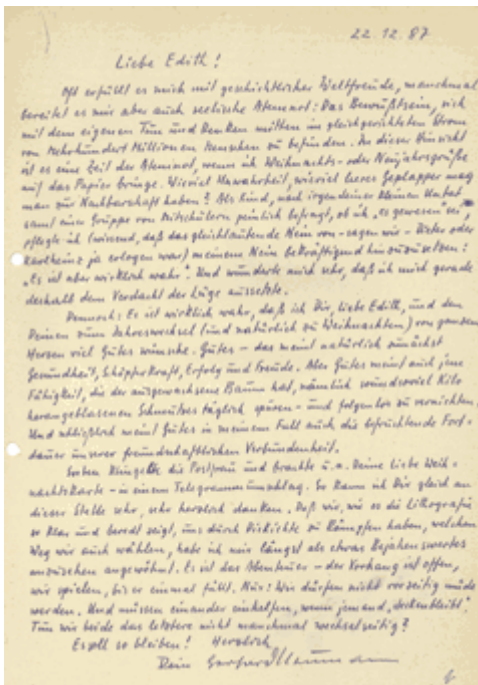 22.12.87
Liebe Edith!
Oft erfüllt es mich mit geschichtlicher Weltfreude, manchmal
bereitet es mir aber auch seelische Atemnot: Das Bewußtsein, sich
mit dem eigenen Tun und Denken mitten im gleichgerichteten Strom
von Mehrhundert Millionen Menschen zu befinden. In dieser Hinsicht
ist es eine Zeit der Atemnot, wenn ich Weihnachts- oder Neujahrsgrüße
auf das Papier bringe. Wieviel Unwahrheit, wieviel leeres Geplapper mag
man zur Nachbarschaft haben? Als Kind, nach irgendeiner kleinen Untat
samt einer Gruppe von Mitschülern peinlich befragt, ob ich „es gewesen" sei,
pflegte ich (wissend, daß das gleichlautende Nein von - sagen wir - Dieter oder
Karlheinz ja erlogen war) meinem Nein bekräftigend hinzuzusetzen:
„Es ist aber wirklich wahr". Und wunderte mich sehr, daß ich mich gerade
deshalb dem Verdacht der Lüge aussetzte.
Dennoch: Es ist wirklich wahr, daß ich Dir, liebe Edith, und den
Deinen zum Jahreswechsel (und natürlich zu Weihnachten) von ganzem
Herzen viel Gutes wünsche. Gutes - das meint natürlich zunächst
Gesundheit, Schöpferkraft, Erfolg und Freude. Aber Gutes meint auch jene
Fähigkeit, die der ausgewachsene Baum hat, nämlich soundsoviel Kilo
herangeblasenen Schmutzes täglich spüren - und folgenlos zu vernichten.
Und schließlich meint Gutes in meinem Fall auch die befruchtende Fort-
dauer unserer freundschaftlichen Verbundenheit.
Soeben klingelte die Postfrau und brachte u.a. Deine liebe Weih-
nachtskarte - in einem Telegrammumschlag. So kann ich Dir gleich an
dieser Stelle sehr, sehr herzlich danken. Daß wir, wie es die Lithografie
so klar und beredt zeigt, uns durch Dickichte zu kämpfen haben, welchen
Weg wir auch wählen, habe ich mir längst als etwas Bejahenswertes
anzusehen angewöhnt. Es ist das Abenteuer - der Vorhang ist offen,
wir spielen, bis er einmal fällt. Nur: Wir dürfen nicht vorzeitig müde
werden. Und müssen einander einhelfen, wenn jemand „steckenbleibt".
Tun wir beide das letztere nicht manchmal wechselseitig?
Es soll so bleiben! Herzlich
Dein Gerhard